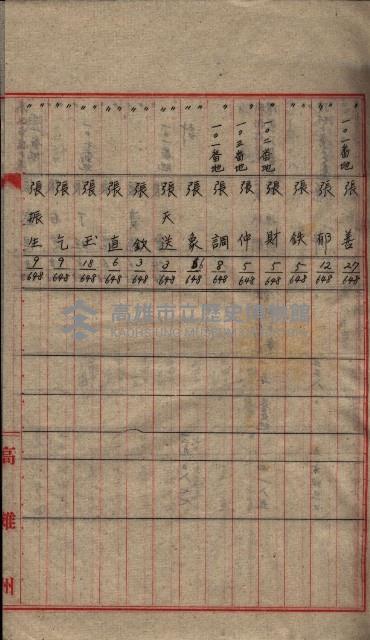 〃 〃 一〇一番地 張善 27/648
〃 〃 張郁 12/648
〃 〃 張鉄 5/648
〃 一〇二番地 張財 5/648
〃 一〇三番地 張仲 5/648
〃 一〇一番地 張調 8/648
〃 〃 張象 /648
〃 〃 張天送 3/648
〃 〃 張欽 3/648
〃 〃 張直 6/648
〃 〃 張玉 18/648
〃 〃 張乞 9/648
〃 〃 張振生 9/648
高雄州
高雄市立歷史博物館
KAOHSIUNG MUSEUM OF HISTORY